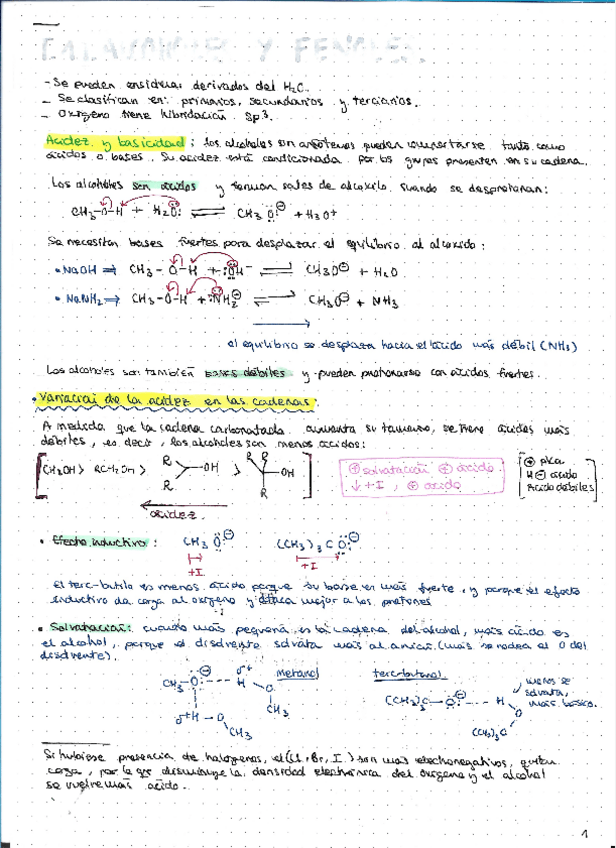 Y FENOLES
- Se pueden considerar derivados del H₂O.
- Se clasifican en: primarios, secundarios y terciarios.
- Oxígeno tiene hibridación sp³.
Acidez y basicidad: los alcoholes son anfóteros pueden comportarse tanto como
ácidos o bases. Su acidez está condicionada por los grupos presenten en su cadena.
Los alcoholes son ácidos y forman sales de alcoxilo, cuando se desprotonan:
CH₃-O-H + H₂O: ⇌ CH₃ O⊖ + H₃O⁺
Se necesitan bases fuertes para desplazar el equilibrio al alcóxido:
• NaOH ⇒ CH₃ - O - H + :OH⁻ ⇌ CH₃O⊖ + H₂O
• NaNH₂ ⇒ CH₃-O-H + :NH₂⊖ ⇌ CH₃O⊖ + NH₃
el equilibrio se desplaza hacia el ácido más débil (NH₃)
Los alcoholes son también bases débiles y pueden protonarse con ácidos fuertes.
• Variación de la acidez en las cadenas:
A medida que la cadena carbonatada aumenta su tamaño, se tiene ácidos más
débiles, es decir, los alcoholes son menos ácidos:
CH₃OH > RCH₂OH > R R -OH > R R R -OH
⊕ solvatación ⊕ ácido
↓ +I, ⊕ ácido
⊕ pKa
⊖ ácido
Ácido débiles
acidez
• Efecto inductivo: CH₃ O⊖ (CH₃)₃ C O⊖
+I +I
El terc-butilo es menos ácido porque su base es más fuerte, y porque el efecto
inductivo da carga al oxígeno y ataca mejor a los protones
• Solvatación: cuanto más pequeña es la cadena del alcohol, más ácido es
el alcohol, porque el disolvente solvata más al anión. (más se rodea el O del
disolvente).
CH₃-O⊖ --- H δ⁺ metanol
O CH₃
δ⁺ H - O CH₃
terc-butanol
(CH₃)₃C-O⊖ --- H O
(CH₃)₃C
menos se
solvata,
más básico.
Si hubiese presencia de halógenos, el (Cl, Br, I) son más electronegativos, quitan
carga, por lo que disminuye la densidad electrónica del oxígeno y el alcohol
se vuelve más ácido.
1